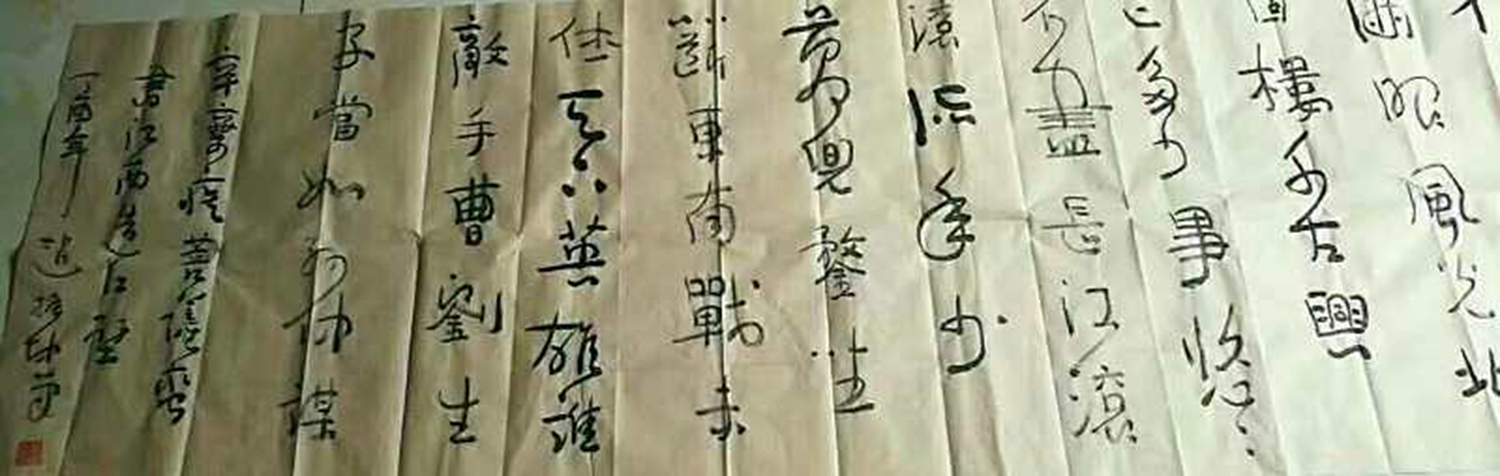 滿眼風光北
固樓千古興
亡多少事悠〻
不盡長江滾
滾流年少
萬兜鍪坐
斷東南戰未
休天下英雄誰
敵手曹劉生
子當如孫仲謀
辛棄疾菩薩蠻
書江西造口壁
丁酉年